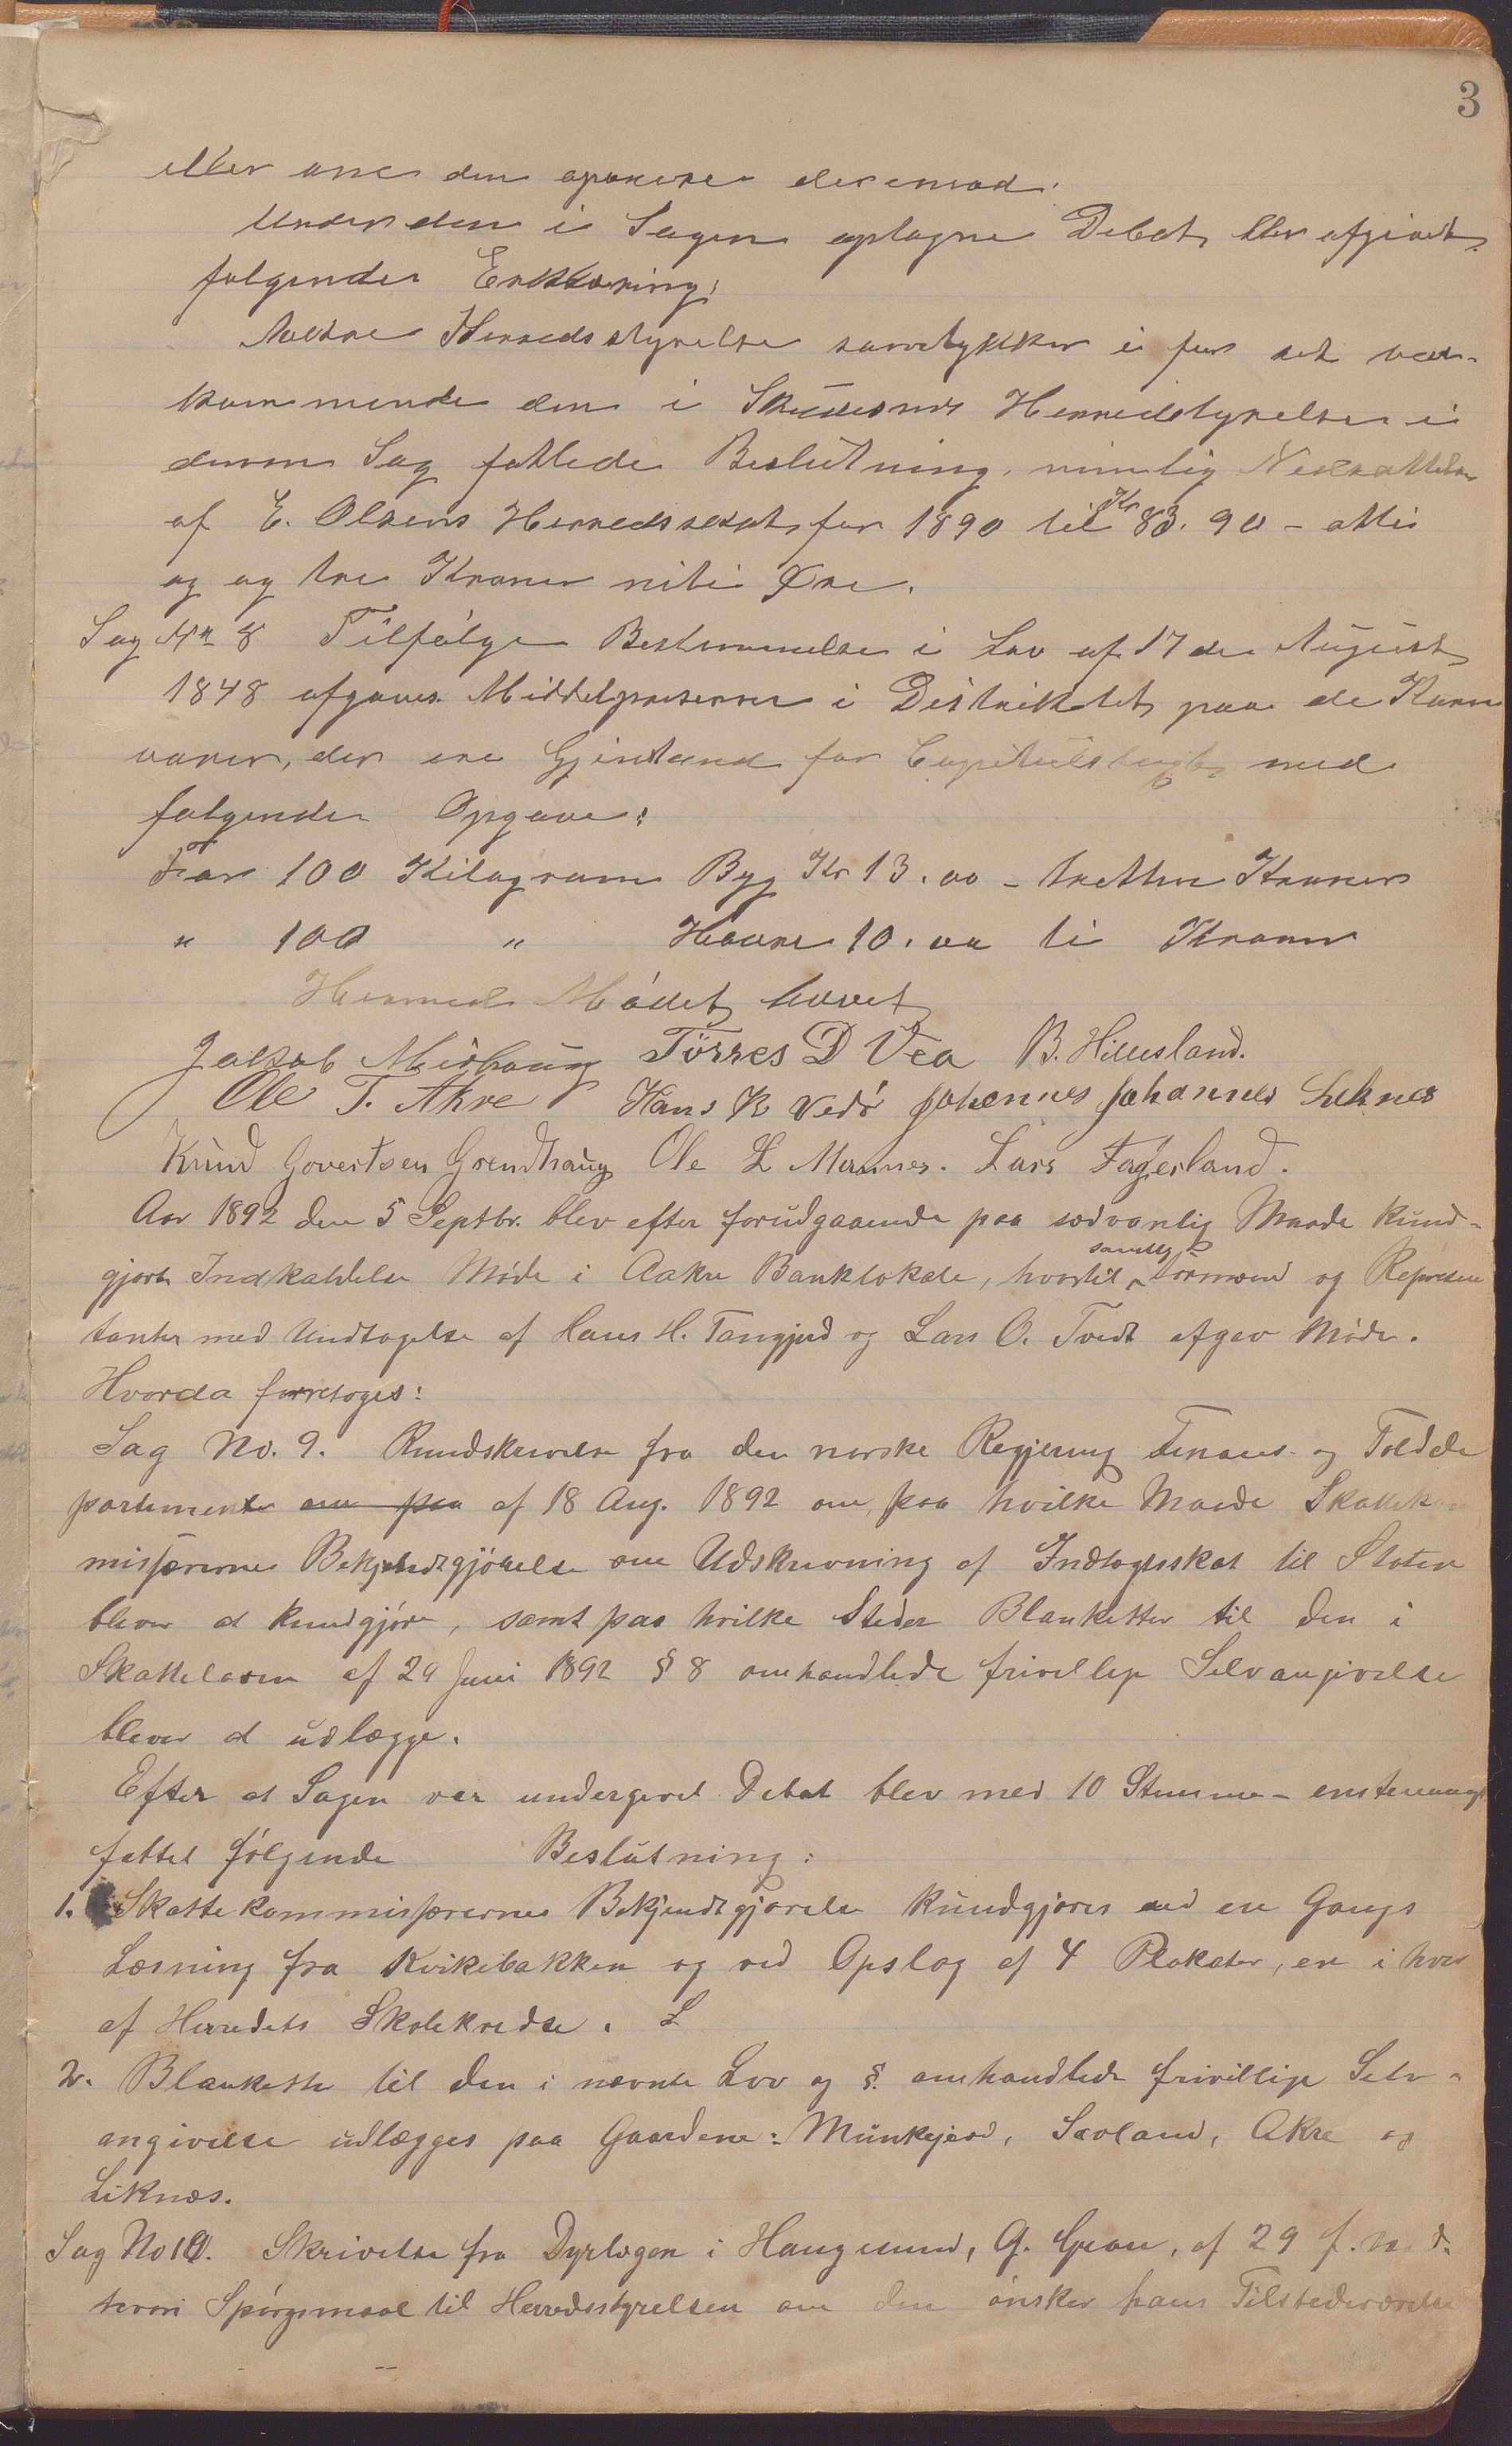 3
eller om den opponere derimod.
Under den i Sagen optagne Debat blev afgivet
følgende Erklæring:
Aakre Herredsstyrelse samtykker i for sit ved-
kommende den i Skudesnes Herredstyrelse i
denne Sag fattede Beslutning, nemlig Nedsættelse
af E. Olsens Herredsskat for 1890 til Kr 83.90 - otti
og og tre Kroner niti Øre.
Sag Nr 8 Tilfølge Bestemmelse i Lov af 17de August
1848 afgaves Middelpriserne i Distriktet paa de Korn
varer, der ere Gjenstand for Capitelstaxt med
følgende Opgave:
For 100 Kilogram Byg Kr 13.00 - tretten Kroner
" 100 " Havre 10.00 ti Kroner
Hermed Mødet hævet
Jakob Midhaug Törres D Vea B. Hillesland.
Ole T. Akre Hans K Vedö Johannes Johannes Liknes
Knud Govertsen Grindhaug Ole L Mannes. Lars Fagerland.
Aar 1892 den 5 Septbr. blev efter forudgaaende paa sædvanlig Maade kund-
gjort Indkaldelse Møde i Aakre Banklokale, hvortil samtlige Formænd og Represen
tanter med Undtagelse af Hans H. Tangjerd og Lars O. Tvedt afgav Møde.
Hvorda foretoges:
Sag No. 9. Rundskrivelse fra den norske Regjering Finans- og Toldde
partemente om paa af 18 Aug. 1892 om, paa hvilke Maade Skattek
missærernes Bekjendtgjörelse om Udskrivning af Indtægtsskat til Staten
bliver at kundgjøre, samt paa hvilke Steder Blanketter til den i
Skatteloven af 29 Juni 1892 § 8 omhandlede frivillige Selvangivelse
bliver at udlægge.
Efter at Sagen var undergivet Debat blev med 10 Stemme - enstemmigt
fattet følgende Beslutning:
1. Skattekommissærernes Bekjendtgjørelse kundgjøres ved en Gangs
Læsning fra Kirkebakken og ved Opslag af 4 Plakater, en i hver
af Herredets Skolekredse. L
2. Blankette til den i nævnte Lov og §. omhandlede frivillige Selv-
angivelse udlægges paa Gaardene: Munkejord, Sævland, Akre og
Liknæs.
Sag No 10. Skrivelse fra Dyrlægen i Haugesund, G. Gran, af 29 f. M. d.
hvori Spørgsmaal til Herredsstyrelsen om den ønsker hans Tilstedeværelse